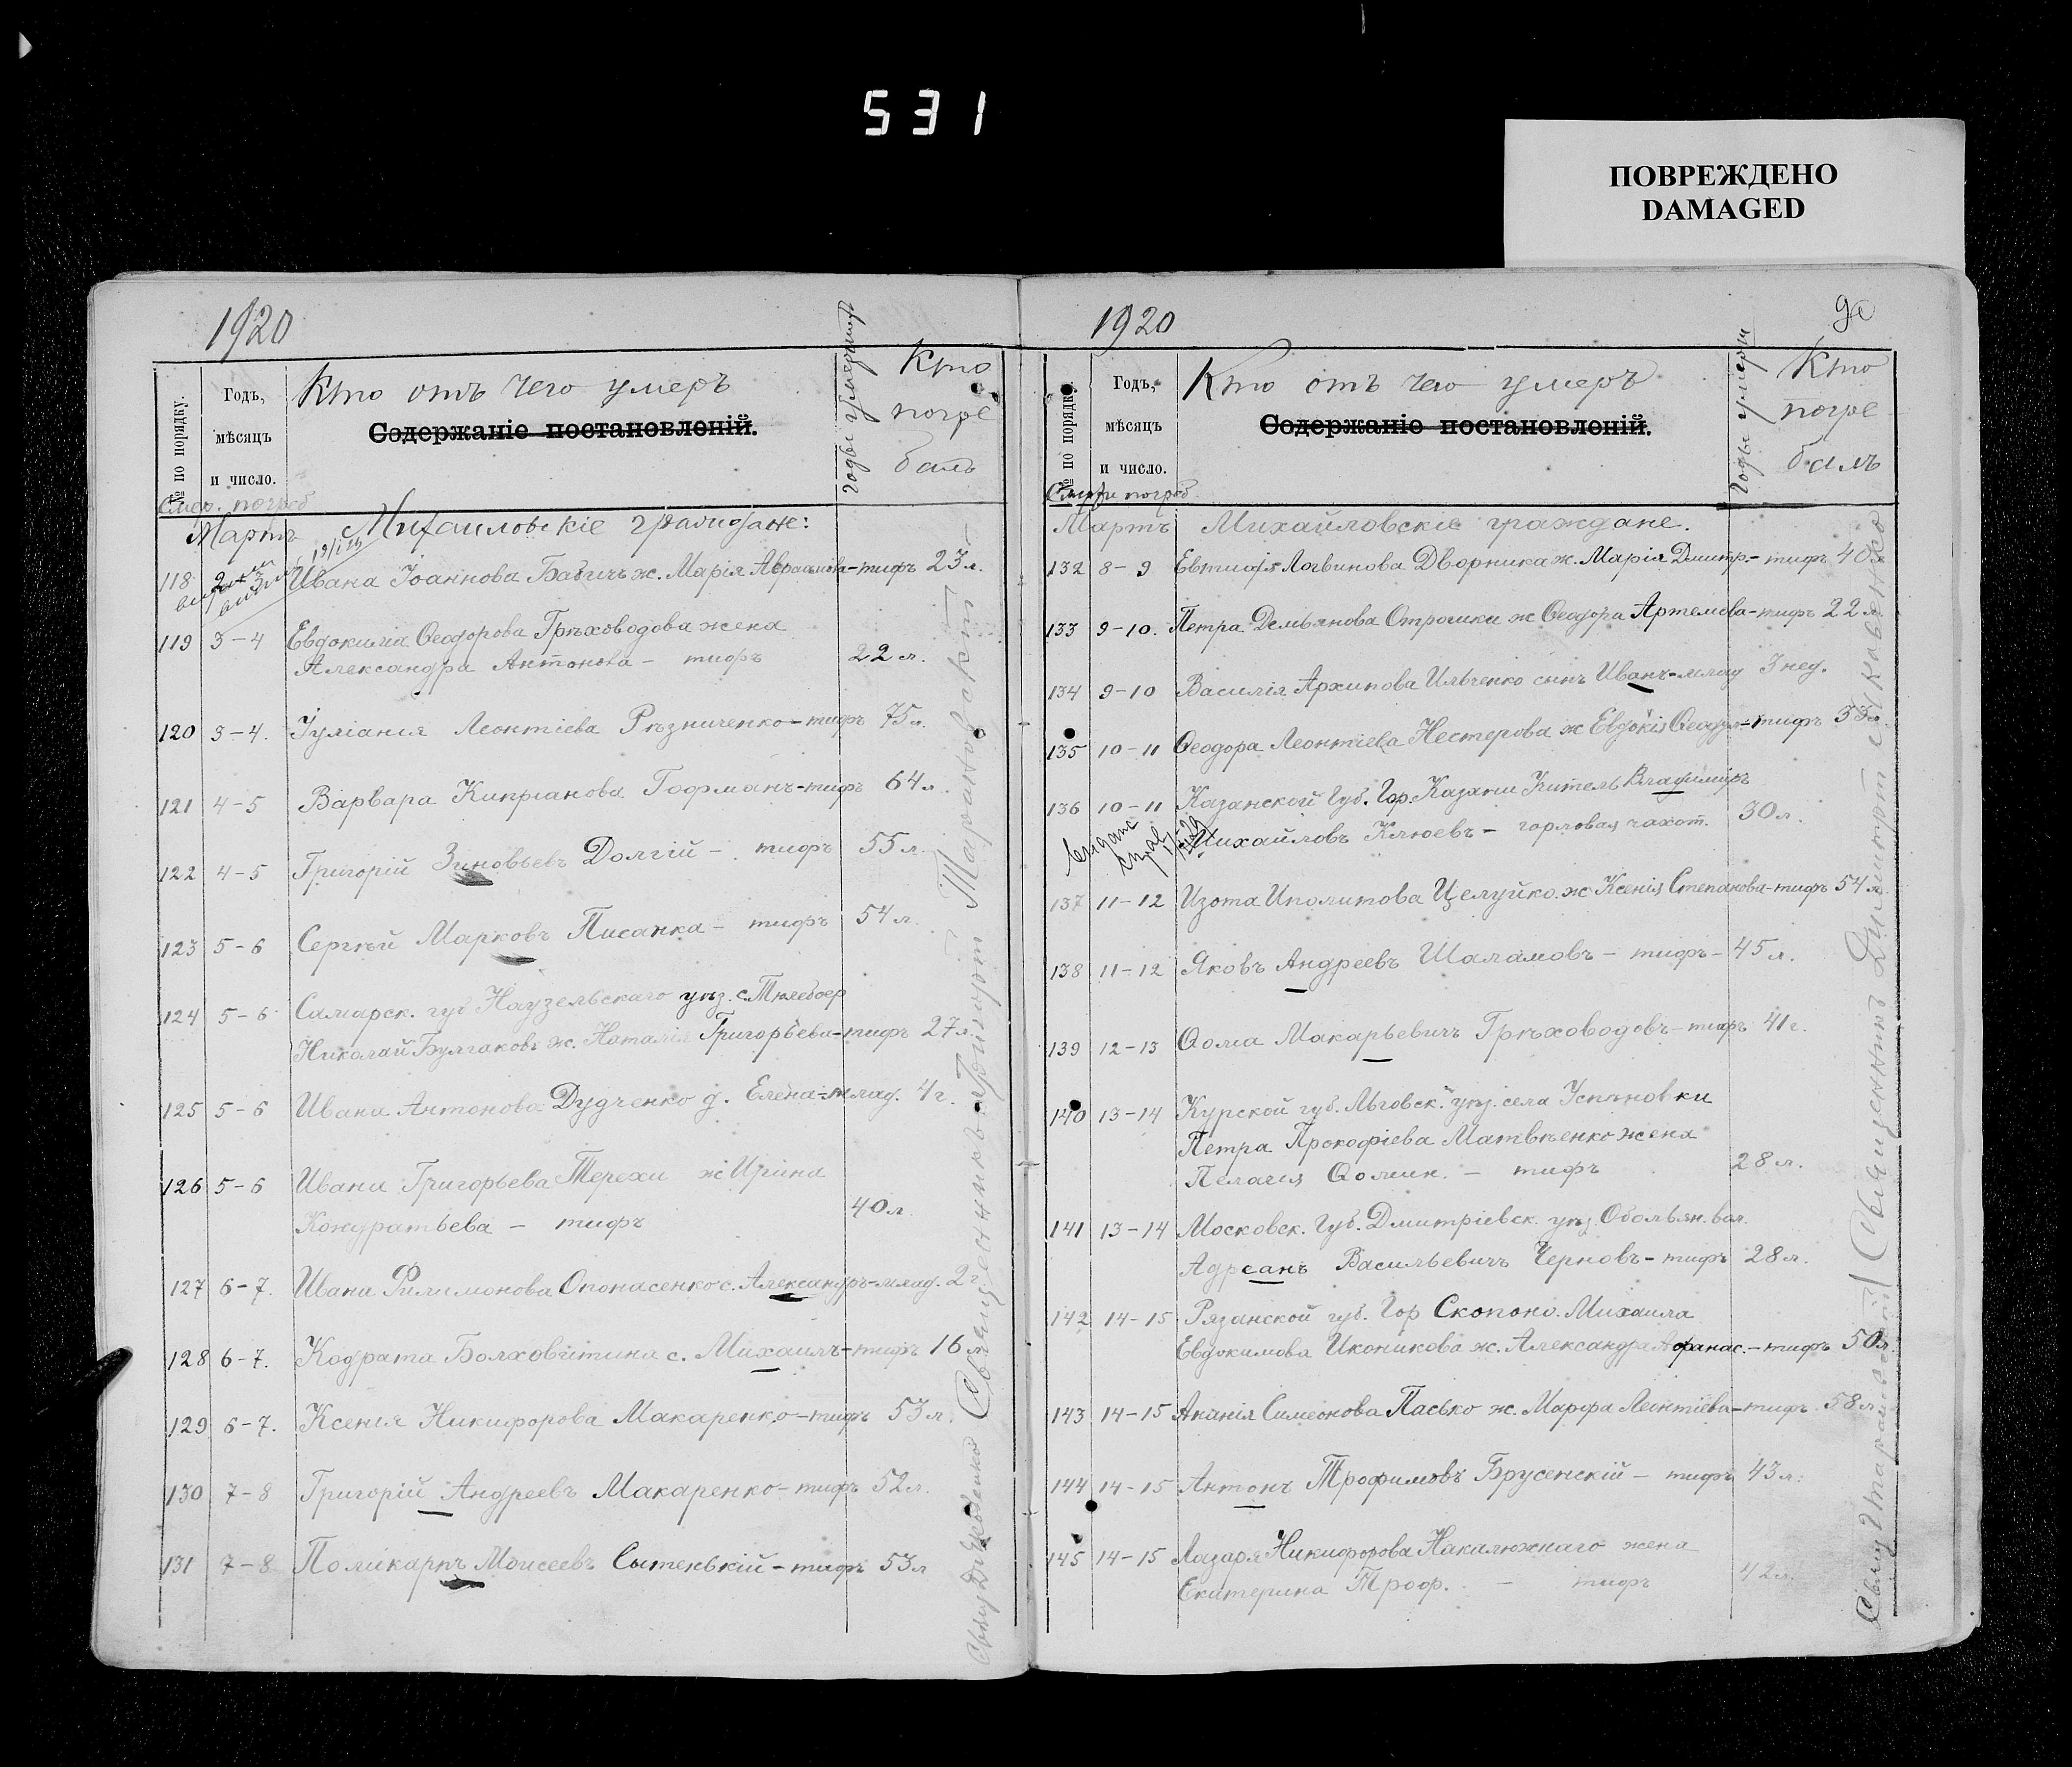 531
ПОВРЕЖДЕНО
DAMAGED
1920
№ по порядку.
Годъ,
мѣсяцъ
и число.
Кто отъ чего умеръ
Содержаніе постановленій.
Годы
Кто
погре
балъ
Смер. погреб
Мартъ Михаиловскіе граждане:
118 2 3 Ивана Іоаннова Бабичъ ж. Марія Авраамова-тифъ 23 л.
119 3-4 Евдокима Ѳеодорова Грѣховодова жена
Александра Антонова - тифъ 22 л.
120 3-4. Іуліанія Леонтіева Рѣзниченко-тифъ 75 л.
121 4-5 Варвара Кипріанова Гофманъ-тифъ 64 л.
122 4-5 Григорій Зиновьевъ Долгій - тифъ 55 л.
123 5-6 Сергѣй Марковъ Писанка - тифъ 54 л.
124 5-6 Самарск. губ уѣз. с.
Николай Булгаковъ ж. Наталія Григорьева-тифъ 27 л.
125 5-6 Ивана Антонова Дудченко д. Елена-млад. 4 г.
126 5-6 Ивана Григорьева Терехи ж Ирина
Кондратьева - тифъ 40 л.
127 6-7. Ивана Филимонова Опонасенко с. Александръ-млад. 2 г.
128 6-7. Кодрата Болховитина с. Михаилъ-тифъ 16 л.
129 6-7. Ксенія Никифорова Макаренко-тифъ 53 л.
130 7-8 Григорій Андреевъ Макаренко-тифъ 52 л.
131 7-8 Поликарпъ Моисеевъ Сытенькій-тифъ 53 л
Священникъ Григорій
1920
№ по порядку.
Годъ,
мѣсяцъ
и число.
Кто отъ чего умеръ
Содержаніе постановленій.
Годы умерш
Кто
погре
балъ
погреб
Мартъ Михайловскіе граждане.
132 8-9 Евтифія Логвинова Дворника ж. Марія Дмитр.-тифъ 40
133 9-10. Петра Демьянова Отрошки ж Ѳеодора Артемова-тифъ 22 л
134 9-10 Василія Архипова Ильченко сынъ Иванъ-млад 3 нед.
135 10-11 Ѳеодора Леонтіева Нестерова ж Евдокія -тифъ 33 л
136 10-11 Казанской Губ. Гор. Казани Учитель Владиміръ
Михайловъ Клюевъ - горловая чахот. 30 л.
137 11-12 Изота Иполитова Целуйко. ж Ксенія Степанова-тифъ 54 л
138 11-12 Яковъ Андреевъ Шаламовъ - тифъ - 45 л.
139 12-13 Ѳома Макарьевичъ Грѣховодовъ-тифъ 41 г.
140 13-14 Курской губ. Льговск. уѣз. села Успѣновки
Петра Прокофіева Матвѣенко жена
Пелагея Ѳомин. - тифъ 28 л.
141 13-14 Московск. Губ. Дмитріевск. уѣз. Обольян. вол.
Адреанъ Васильевичъ Черновъ-тифъ 28 л.
142 14-15 Рязанской губ. Гор Скопоно. Михаила
Евдокимова Иконикова ж. Александра Афанас.-тифъ 50 л.
143 14-15 Ананія Симеонова Пасько ж. Марфа Леонтіева-тифъ 58 л
144 14-15 Антонъ Трофимовъ Брусенскій - тифъ 43 л.
145 14-15 Лазаря Никифорова Накалюжнаго жена
Екатерина Троф. - тифъ 42 л.
Священникъ Димитрій